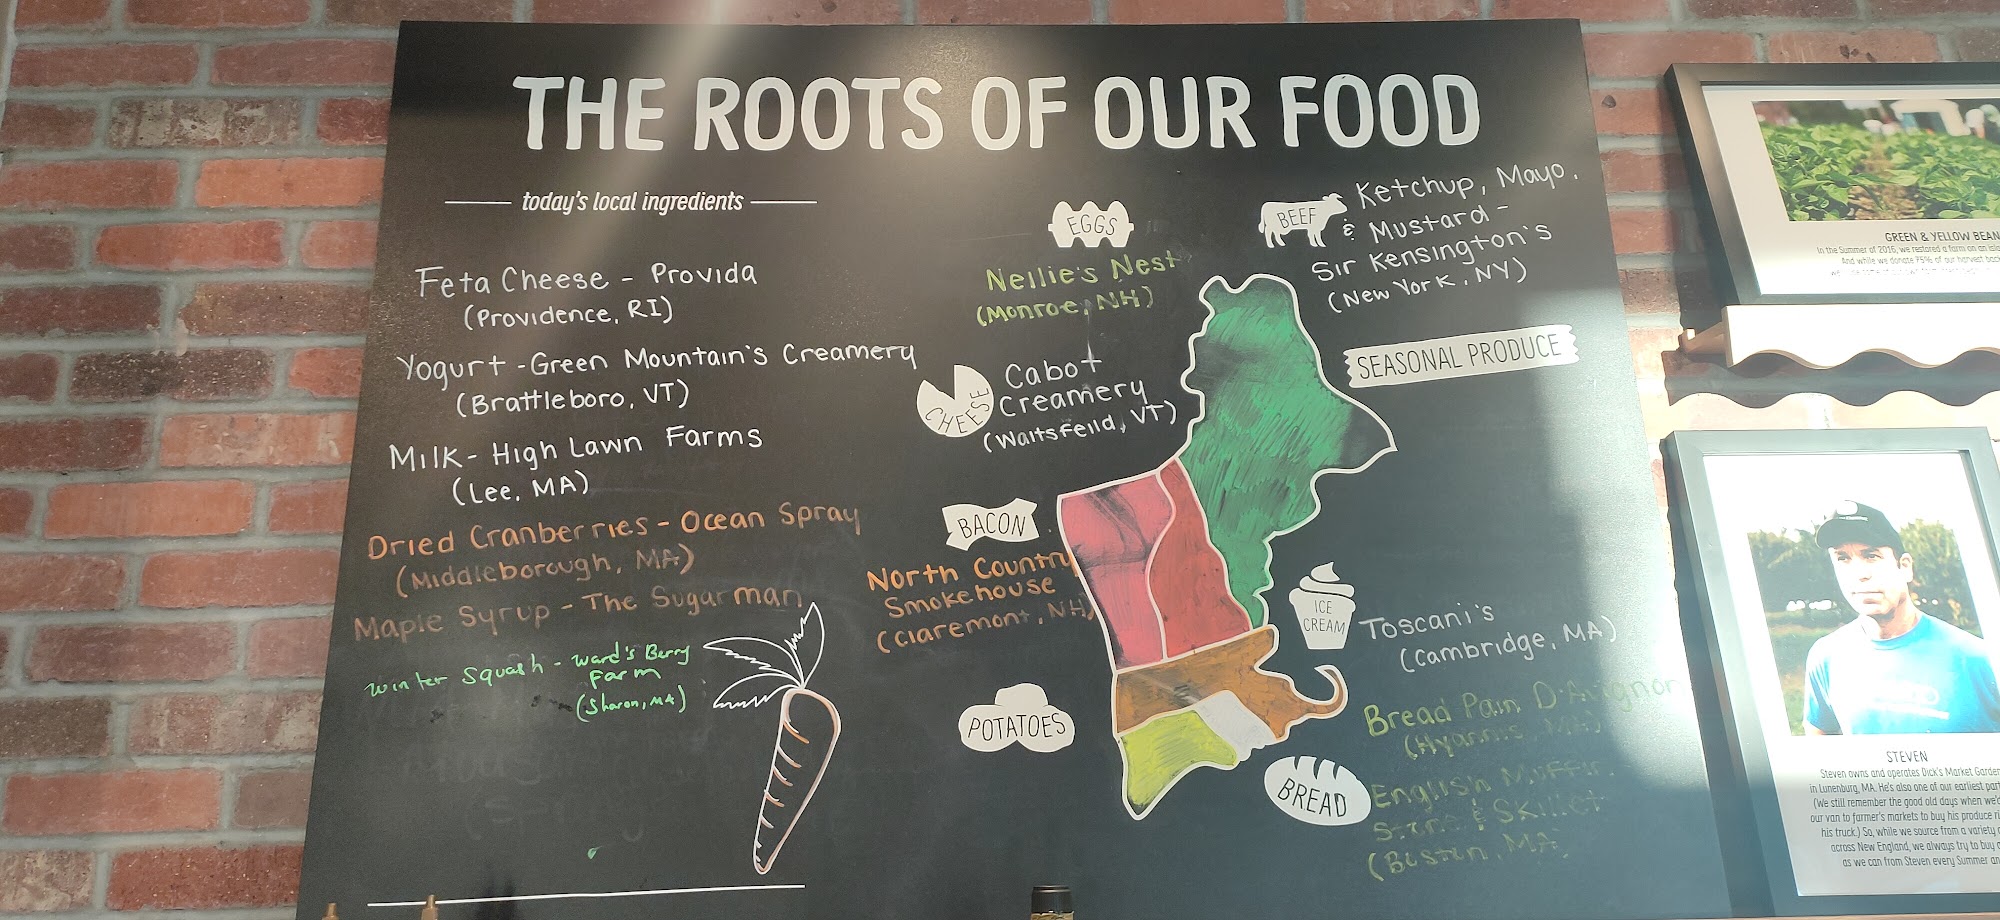 THE ROOTS OF OUR FOOD
today's local ingredients
Feta Cheese - Provida
(Providence, RI)
Yogurt - Green Mountain's Creamery
(Brattleboro, VT)
Milk - High Lawn Farms
(Lee, MA)
Dried Cranberries - Ocean Spray
(Middleborough, MA)
Maple Syrup - The Sugarman
Winter Squash - Ward's Berry
Farm
(Sharon, MA)
EGGS
Nellie's Nest
(Monroe, NH)
CHEESE
Cabot
Creamery
(Waitsfeild, VT)
BACON
North Country
Smokehouse
(Claremont, NH)
POTATOES
BEEF
Ketchup, Mayo,
& Mustard -
Sir Kensington's
(New York, NY)
SEASONAL PRODUCE
ICE
CREAM
Toscani's
(Cambridge, MA)
BREAD
Bread Pain D'Avignon
(Hyannis, MA)
English Muffin
Stone & Skillet
(Boston, MA)
GREEN & YELLOW BEAN
In the Summer of 2016, we restored a farm on an
And while we donate 75% of our harvest back
STEVEN
Steven owns and operates Dick's Market Garden
in Lunenburg, MA. He's also one of our earliest
(We still remember the good old days when we'd
our van to farmer's markets to buy his produce
his truck.) So, while we source from a variety
across New England, we always try to buy
as we can from Steven every Summer